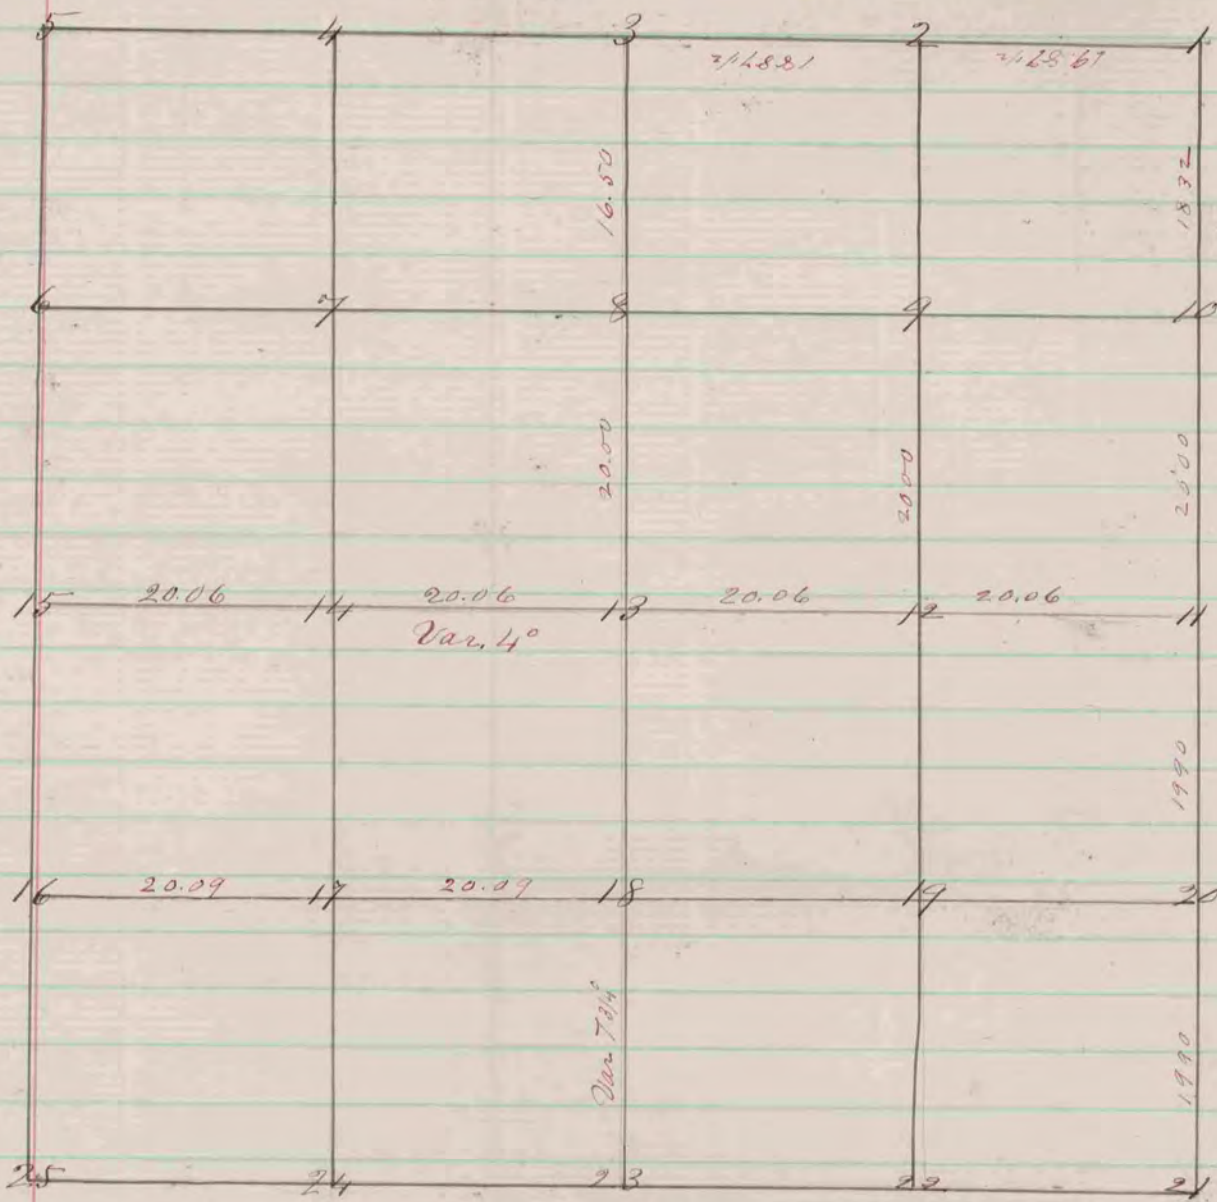 5 4 3 2 1
19.87 1/2
16.50
1832
6 7 8 9 10
20.00
2000
20.00
15 20.06 14 20.06 13 20.06 12 20.06 11
Var. 4°
1990
16 20.09 17 20.09 18 19 20
Var 7 3/4°
1990
25 24 23 22 21